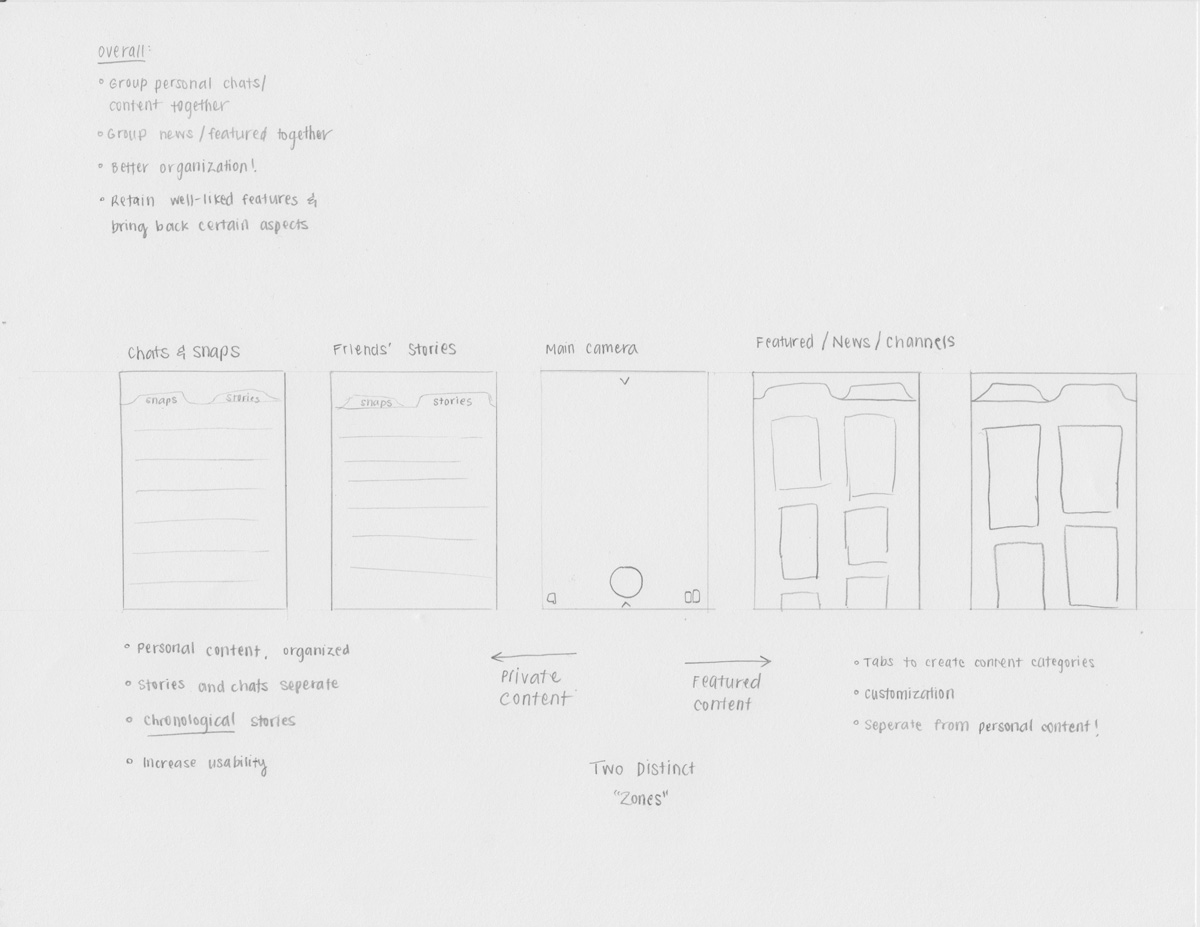 overall:
• Group personal chats/
content together
• Group news/featured together
• Better organization!
• Retain well-liked features &
bring back certain aspects
Chats & snaps
Friends' Stories
Main camera
Featured/News/Channels
snaps
stories
snaps
stories
• Personal content, organized
• Stories and chats seperate
• Chronological stories
• Increase usability
Private
content
Featured
content
Two Distinct
"Zones"
• Tabs to create content categories
• customization
• Seperate from personal content!